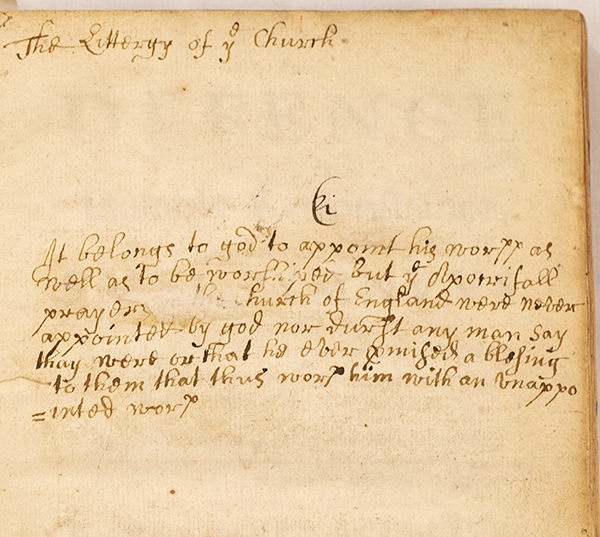 The Littergy of yᵉ Church
Ki
It belongs to god to appoint his worpp as
well as to be worshiped but yᵉ Apocrifall
prayers Church of England were never
appointed by god nor durst any man say
thay were or that he ever promised a blesing
to them that thus worp him with an vnappo
=inted worp